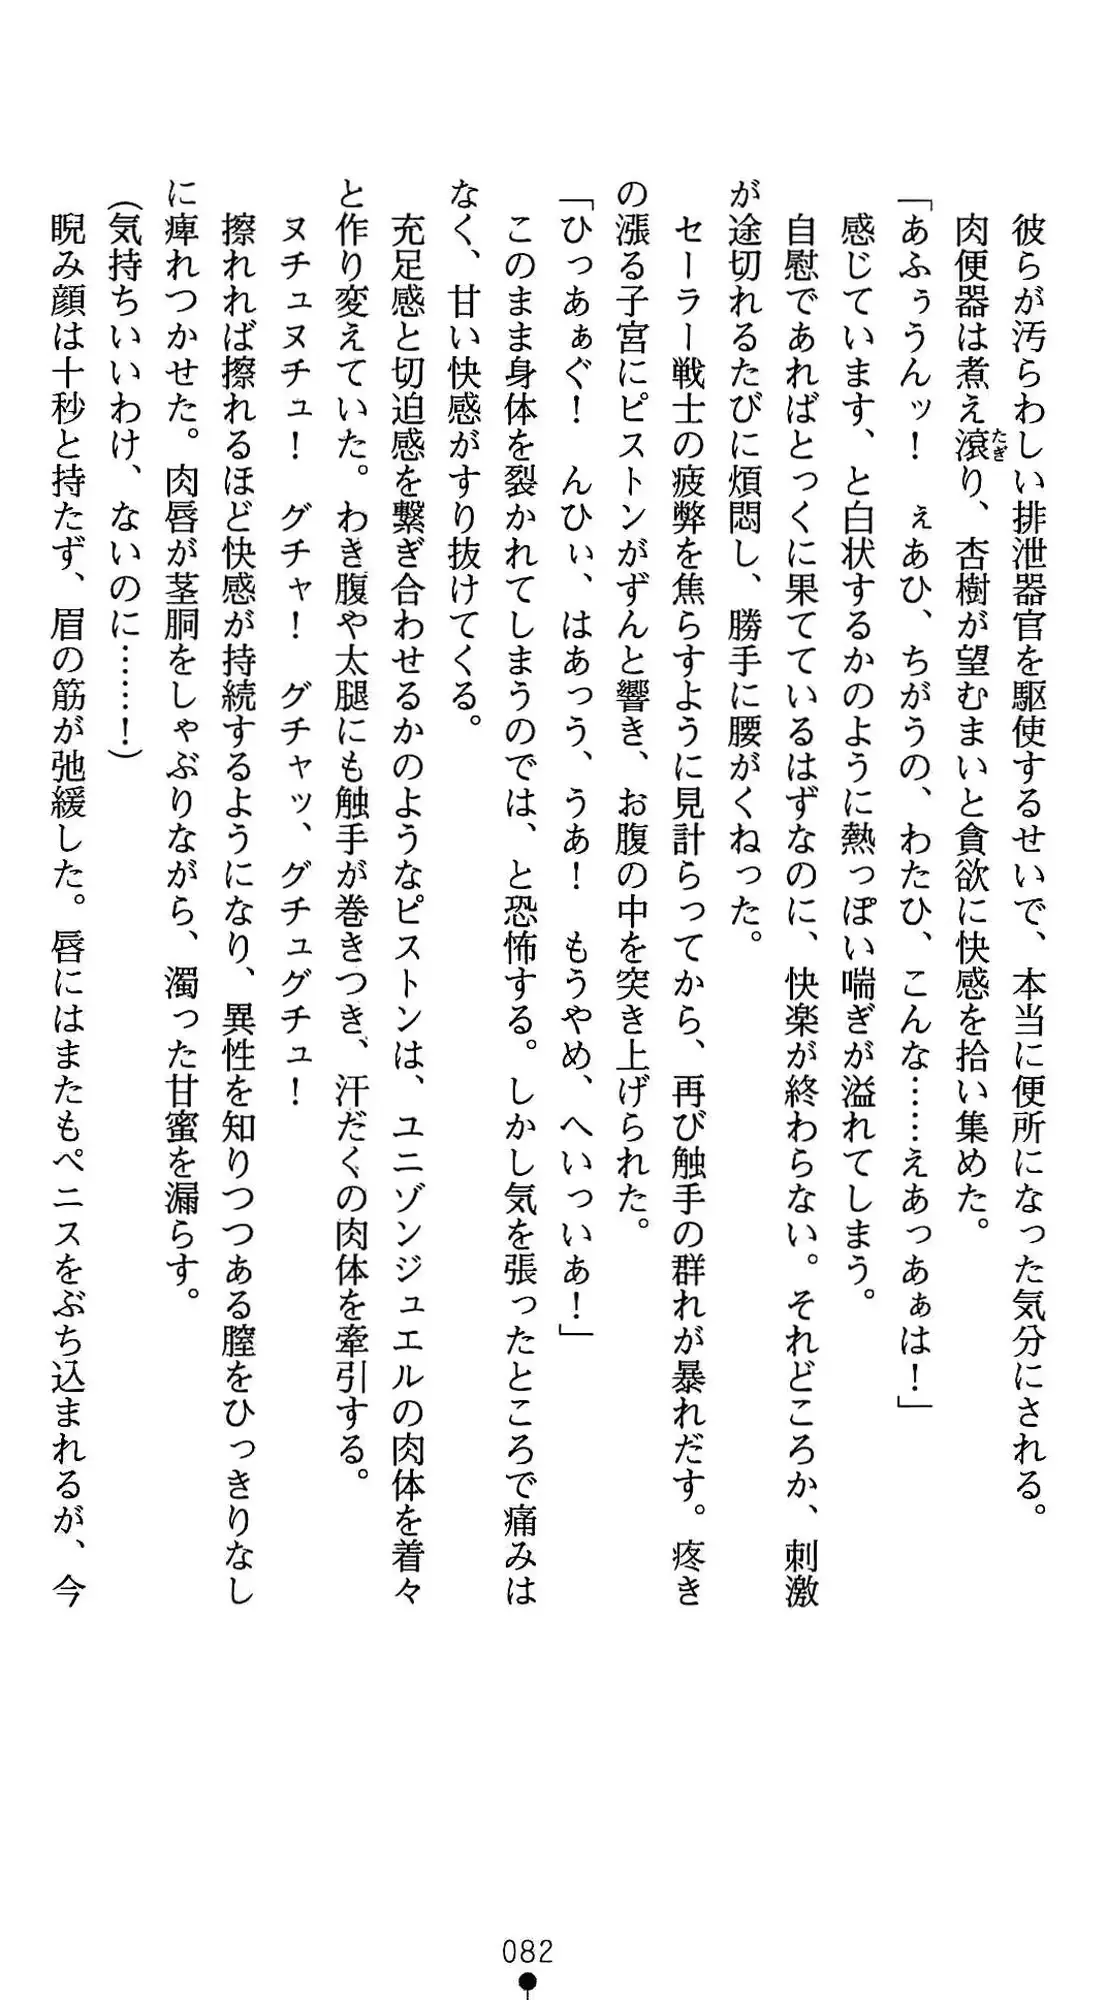 彼らが汚らわしい排泄器官を駆使するせいで、本当に便所になった気分にされる。
肉便器は煮え滾り、杏樹が望むまいと貪欲に快感を拾い集めた。
たぎ
「あふぅうんッ！　ぇあひ、ちがうの、わたひ、こんな……えあっあぁは！」
感じています、と白状するかのように熱っぽい喘ぎが溢れてしまう。
自慰であればとっくに果てているはずなのに、快楽が終わらない。それどころか、刺激
が途切れるたびに煩悶し、勝手に腰がくねった。
セーラー戦士の疲弊を焦らすように見計らってから、再び触手の群れが暴れだす。疼き
の漲る子宮にピストンがずんと響き、お腹の中を突き上げられた。
「ひっあぁぐ！　んひぃ、はあっう、うあ！　もうやめ、へいっいぁ！」
このまま身体を裂かれてしまうのでは、と恐怖する。しかし気を張ったところで痛みは
なく、甘い快感がすり抜けてくる。
充足感と切迫感を繋ぎ合わせるかのようなピストンは、ユニゾンジュエルの肉体を着々
と作り変えていた。わき腹や太腿にも触手が巻きつき、汗だくの肉体を牽引する。
ヌチュヌチュ！　グチャ！　グチャッ、グチュグチュ！
擦れれば擦れるほど快感が持続するようになり、異性を知りつつある膣をひっきりなし
に痺れつかせた。肉唇が茎胴をしゃぶりながら、濁った甘蜜を漏らす。
（気持ちいいわけ、ないのに……！）
睨み顔は十秒と持たず、眉の筋が弛緩した。唇にはまたもペニスをぶち込まれるが、今
082